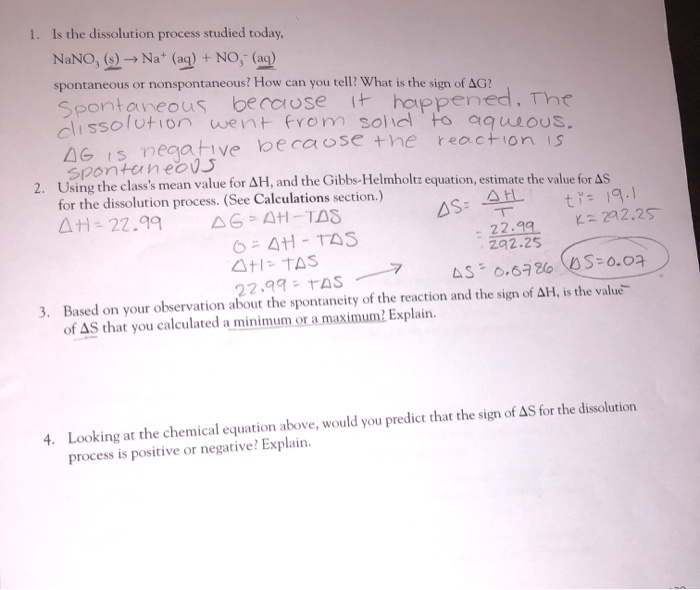 1. Is the dissolution process studied today,
NaNO₃ (s) → Na⁺ (aq) + NO₃⁻ (aq)
spontaneous or nonspontaneous? How can you tell? What is the sign of ΔG?
Spontaneous because it happened. The
dissolution went from solid to aqueous.
ΔG is negative because the reaction is
spontaneous
2. Using the class's mean value for ΔH, and the Gibbs-Helmholtz equation, estimate the value for ΔS
for the dissolution process. (See Calculations section.)
ΔH = 22.99
ΔG = ΔH - TΔS
0 = ΔH - TΔS
ΔH = TΔS
22.99 = TΔS
ΔS = ΔH / T
= 22.99 / 292.25
ΔS = 0.0786
ΔS = 0.07
ti = 19.1
K = 292.25
3. Based on your observation about the spontaneity of the reaction and the sign of ΔH, is the value
of ΔS that you calculated a minimum or a maximum? Explain.
4. Looking at the chemical equation above, would you predict that the sign of ΔS for the dissolution
process is positive or negative? Explain.